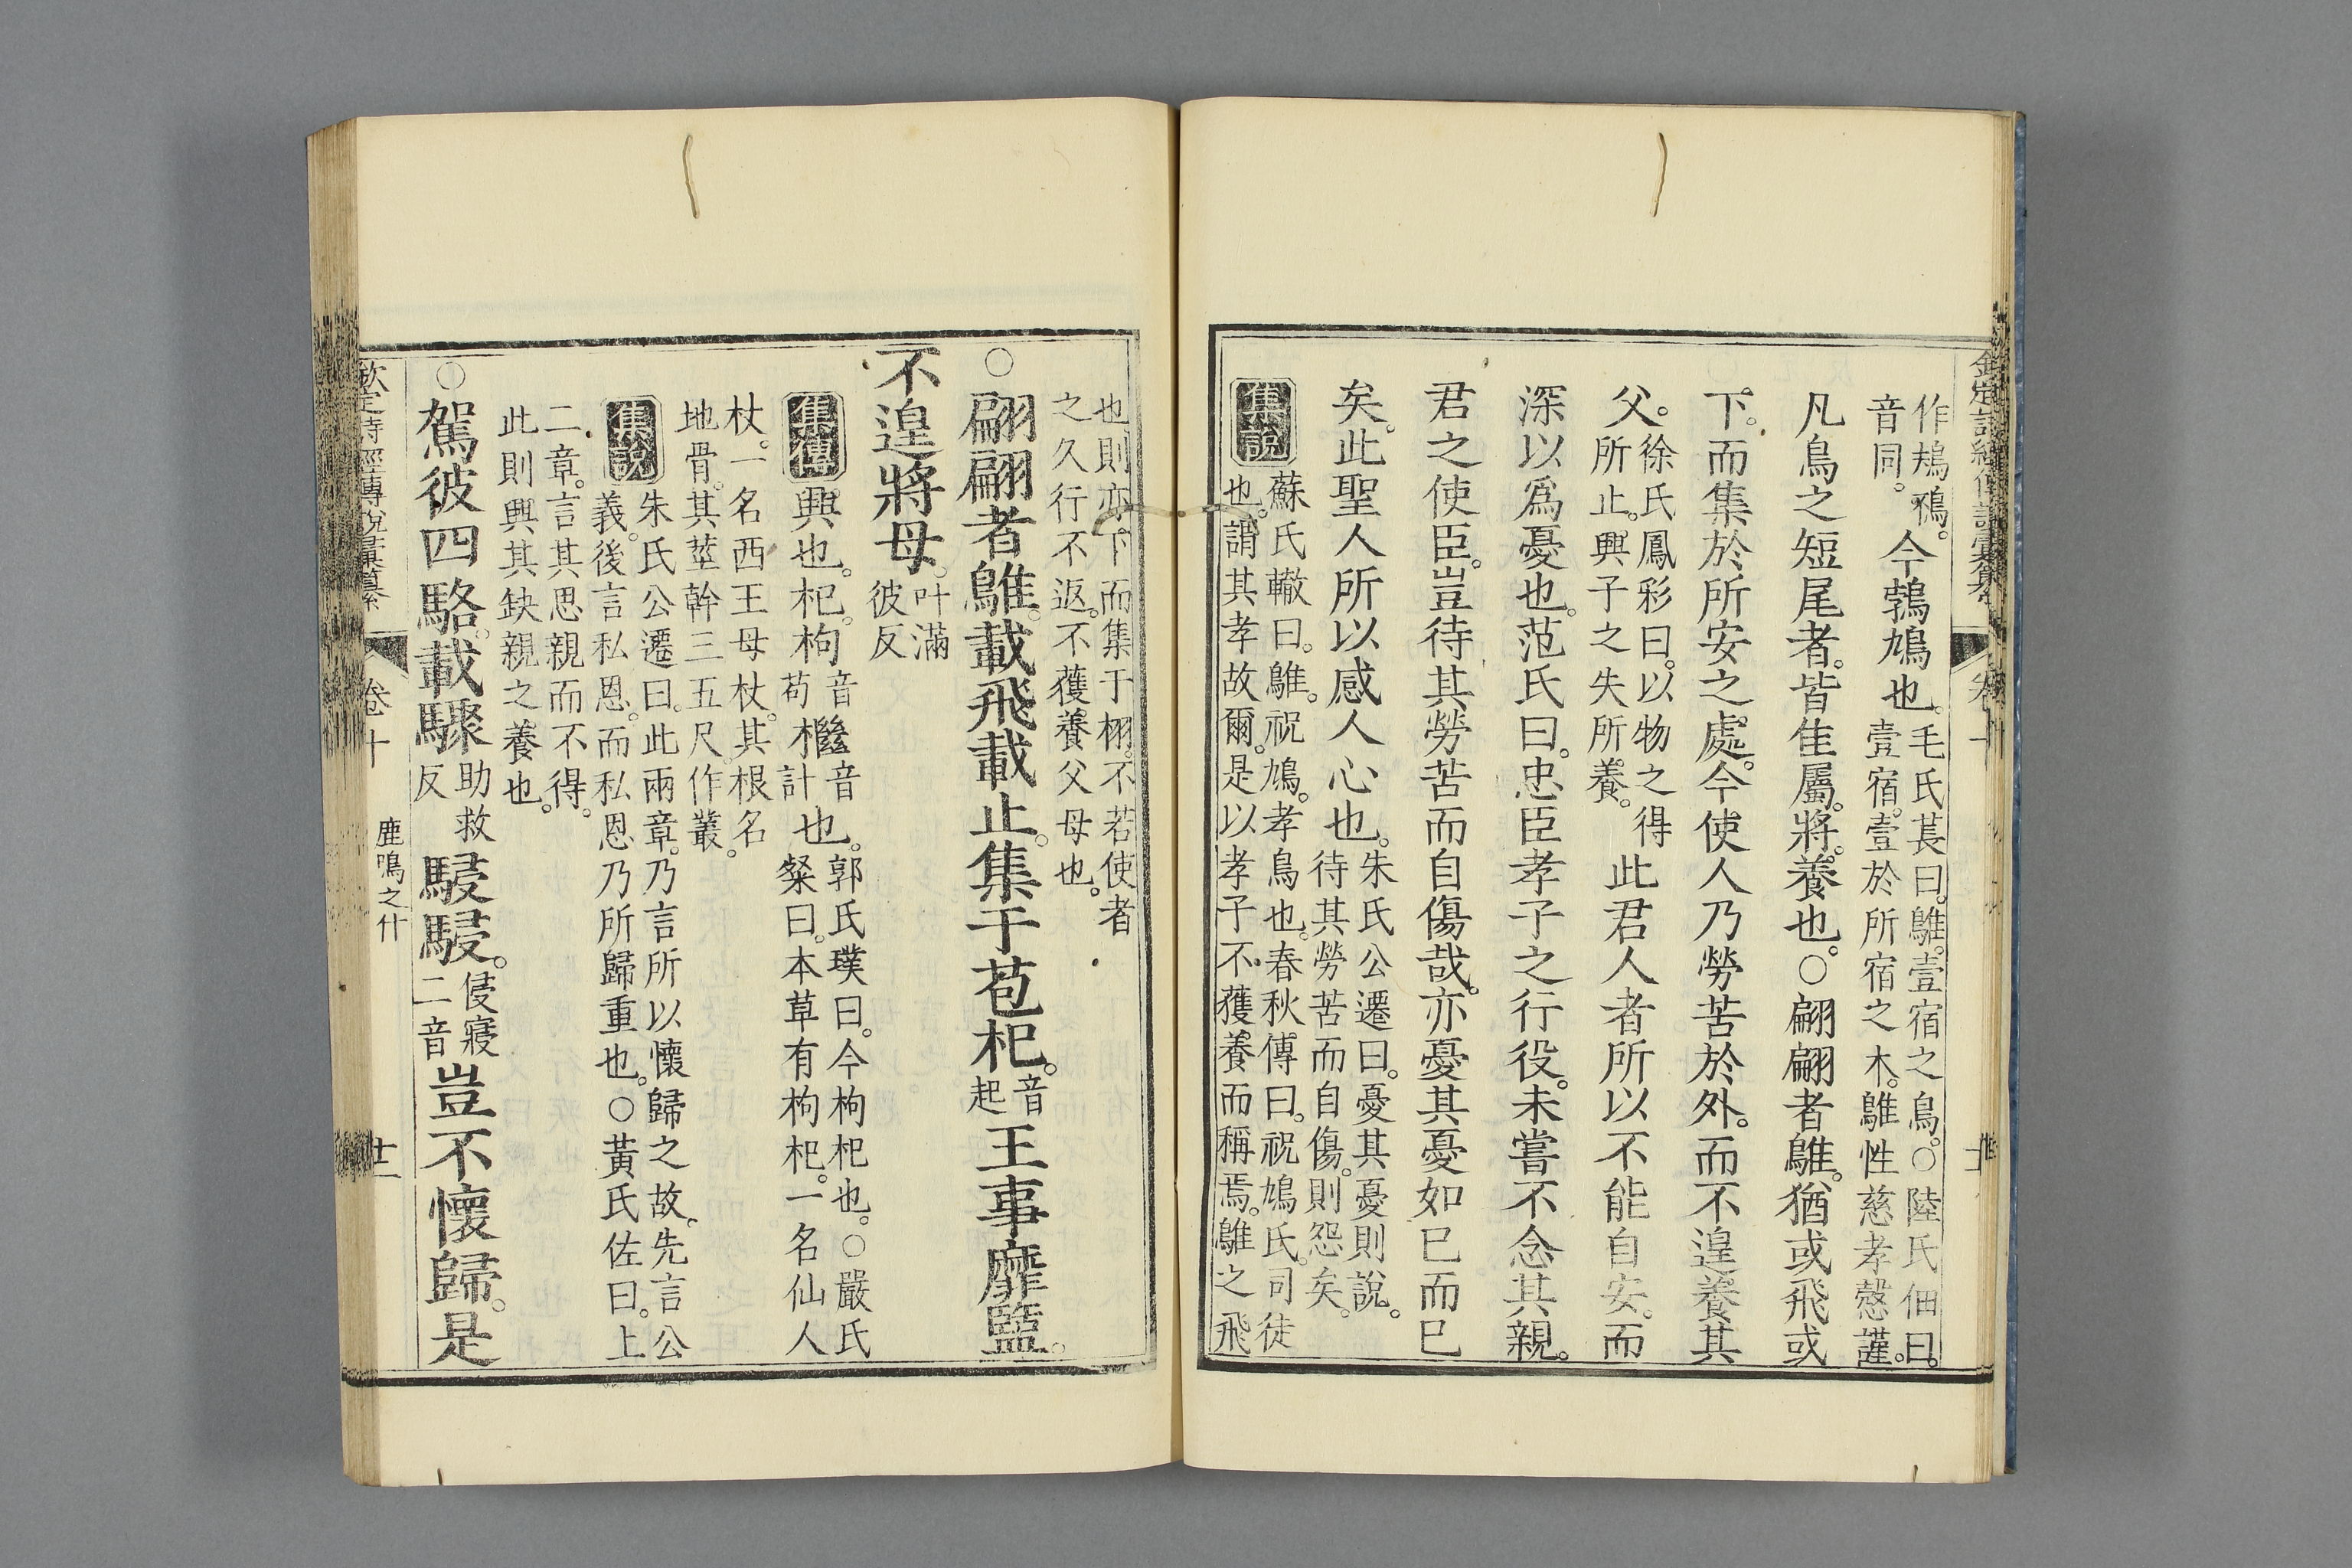 作鳺鴀。今鵓鳩也。毛氏萇曰。鵻。壹宿之鳥。○陸氏佃曰。
音同。壹宿。壹於所宿之木。鵻性慈孝慤謹。
凡鳥之短尾者。皆隹屬。將。養也。○翩翩者鵻。猶或飛或
下。而集於所安之處。今使人乃勞苦於外。而不遑養其
父。徐氏鳳彩曰。以物之得所止。興子之失所養。此君人者所以不能自安。而
深以爲憂也。范氏曰。忠臣孝子之行役。未嘗不念其親。
君之使臣。豈待其勞苦而自傷哉。亦憂其憂如己而已
矣。此聖人所以感人心也。朱氏公遷曰。憂其憂則說。待其勞苦而自傷。則怨矣。
集說
蘇氏轍曰。鵻。祝鳩。孝鳥也。春秋傳曰。祝鳩氏。司徒
也。謂其孝故爾。是以孝子不獲養而稱焉。鵻之飛
也則亦下而集于栩。不若使者
之久行不返。不獲養父母也。
○翩翩者鵻。載飛載止。集于苞杞。音起王事靡盬。
不遑將母。叶滿彼反
集傳
興也。杞。枸音苟檵音計也。郭氏璞曰。今枸杞也。○嚴氏
粲曰。本草有枸杞。一名仙人
杖。一名西王母杖。其根名
地骨。其莖幹三五尺。作叢。
集說
朱氏公遷曰。此兩章。乃言所以懷歸之故。先言公
義。後言私恩。而私恩乃所歸重也。○黃氏佐曰。上
二章。言其思親而不得。
此則興其缺親之養也。
○駕彼四駱。載驟助救反駸駸。侵寢二音豈不懷歸。是
欽定詩經傳說彙纂
卷十
鹿鳴之什